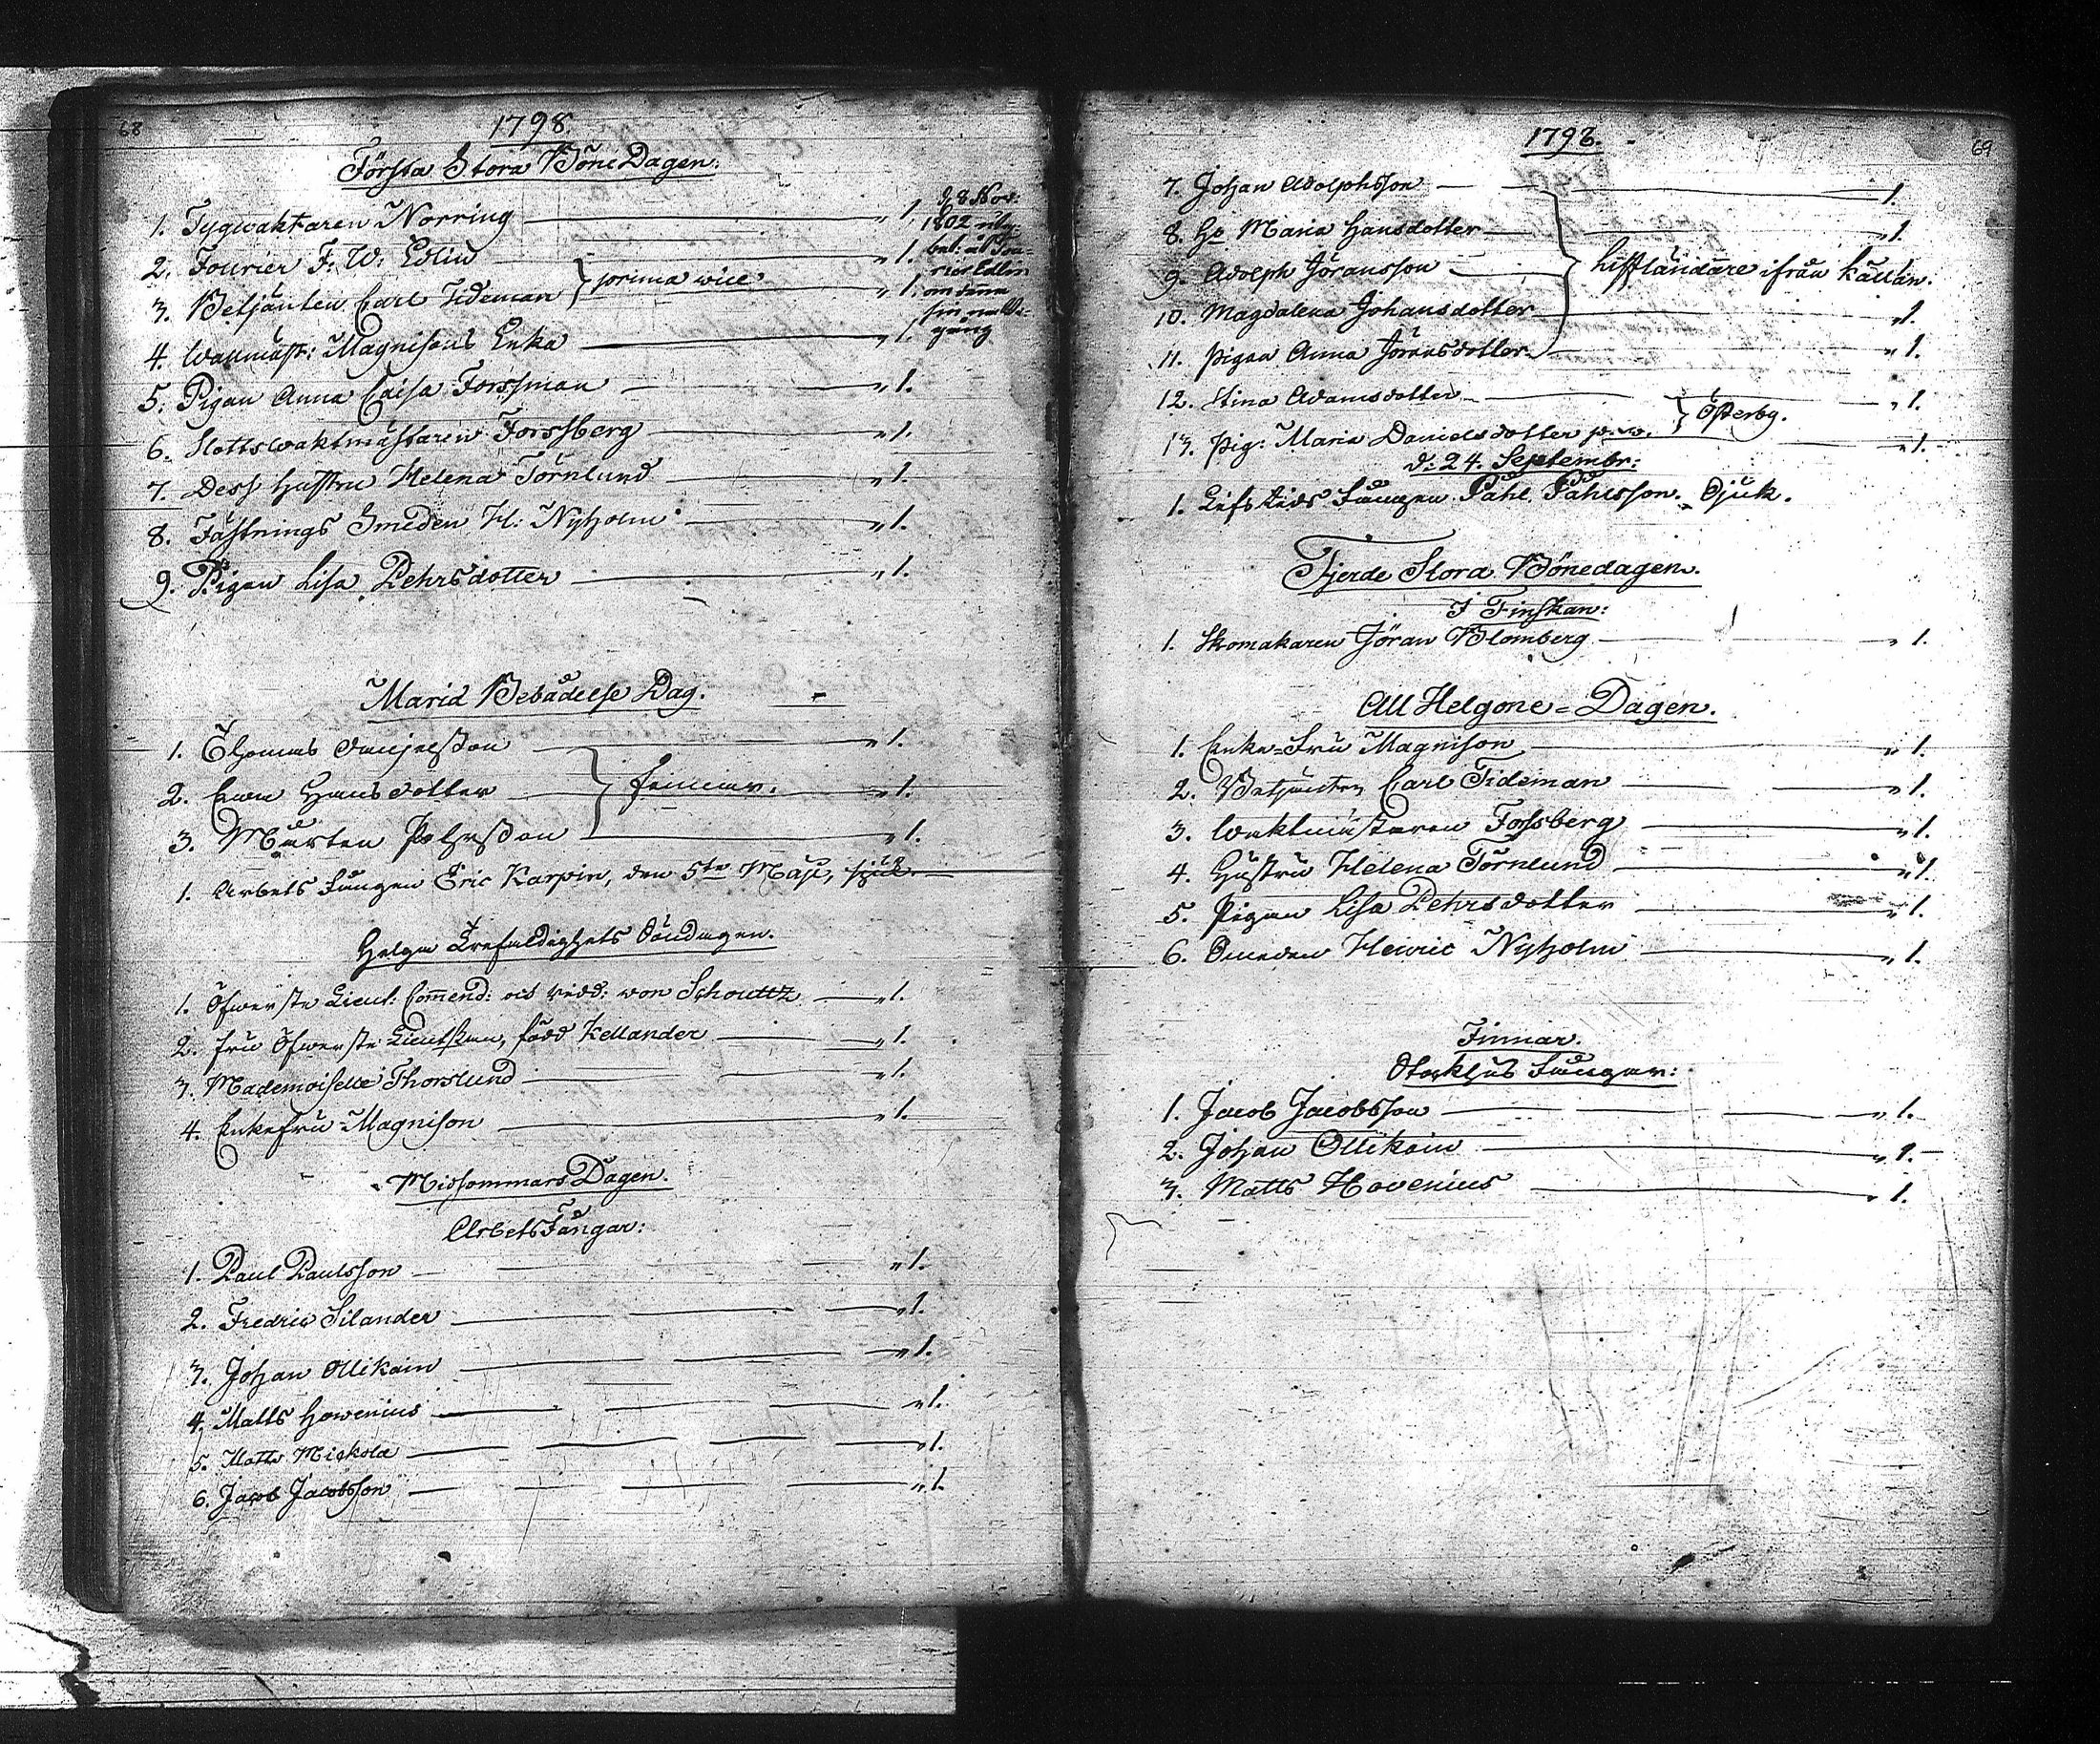 68
1798.
Första Stora Böne Dagen.
1. Tygwaktaren Norring — " 1.
2. Fourier F: W: Edlin — " 1.
3. Betjänten Carl Tideman } prima vice — " 1.
4. Wallmäst: Magnisons Enka — " 1.
d, 8 Nov:
1802
bet: at Fou-
rier Edlin
om denna
sin nattv-
gång
5. Pigan Anna Caisa Forssman — " 1.
6. Slottswaktmästaren Forssberg — " 1.
7. Dess Hustru Helena Törnlund — " 1.
8. Fästnings Smeden H: Nyholm — " 1.
9. Pigan Lisa Pehrsdotter — " 1.
Mariä Bebådelse Dag.
1. Thomas Danjelsson — " 1.
2. Ewa Hansdotter } finnar. — " 1.
3. Mårten Påhlsson — " 1.
1. Arbets Fången Eric Karpin, den 5te Maji, sjuk. —
Helga Trefaldighets Söndagen.
1. Öfwerste Lieut: Commend: och Ridd: von Schoultz — " 1.
2. Fru Öfwerste Lieutskan, född Kellander — " 1.
3. Mademoiselle Thorslund — " 1.
4. Enkefru Magnison — " 1.
Midsommars Dagen.
Arbets Fångar:
1. Paul Paulsson — " 1.
2. Fredric Silander — " 1.
3. Johan Ollikain — " 1.
4. Matts Howenius — " 1.
5. Matts Mickola — " 1.
6. Jacob Jacobsson — " 1.
69
1798.
7. Johan Adolphsson — 1.
8. Hu Maria Hansdotter — " 1.
9. Adolph Jöransson — } Lifländare ifrån Källan.
10. Magdalena Johansdotter — " 1.
11. Pigan Anna Jöransdotter — " 1.
12. Stina Adamsdotter — " 1.
13. Pig: Maria Danielsdotter p. v. } Österby. — " 1.
d: 24. Septembr:
1. Lifstids Fången Påhl Påhlsson. Sjuk.
Fjerde Stora Bönedagen.
I Finskan:
1. Skomakaren Jöran Blomberg — " 1.
All Helgone-Dagen.
1. Enke-Fru Magnison — " 1.
2. Betjänten Carl Tideman — " 1.
3. Waktmästaren Forssberg — " 1.
4. Hustru Helena Törnlund — " 1.
5. Pigan Lisa Pehrsdotter — " 1.
6. Smeden Henric Nyholm — " 1.
Finnar.
Stockhus Fångar:
1. Jacob Jacobsson — " 1.
2. Johan Ollikain — " 1. —
3. Matts Hovenius — " 1.